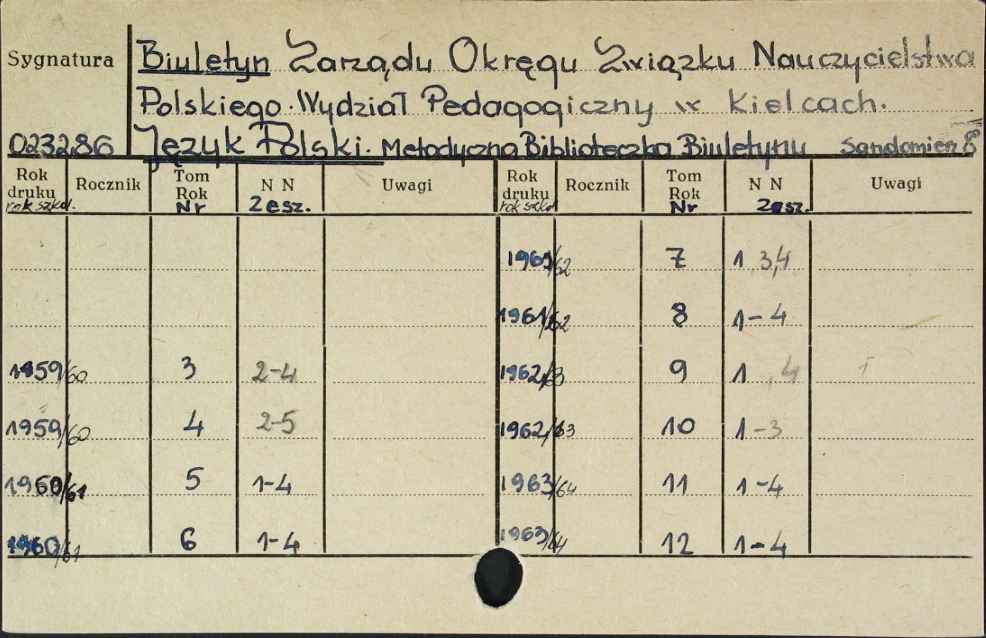 Sygnatura
Biuletyn Zarządu Okręgu Związku Nauczycielstwa
Polskiego. Wydział Pedagogiczny w Kielcach.
023286
Język Polski. Metodyczna Biblioteczka Biuletynu
Rok druku rok szkol. Rocznik Tom Rok Nr N N Zesz. Uwagi Rok druku rok szkol Rocznik Tom Rok Nr N N Zesz. Uwagi
1961/62 7 1, 3,4
1961/62 8 1-4
1959/60 3 2-4 1962/63 9 1, 4
1959/60 4 2-5 1962/63 10 1-3
1960/61 5 1-4 1963/64 11 1-4
1960/61 6 1-4 1963/64 12 1-4